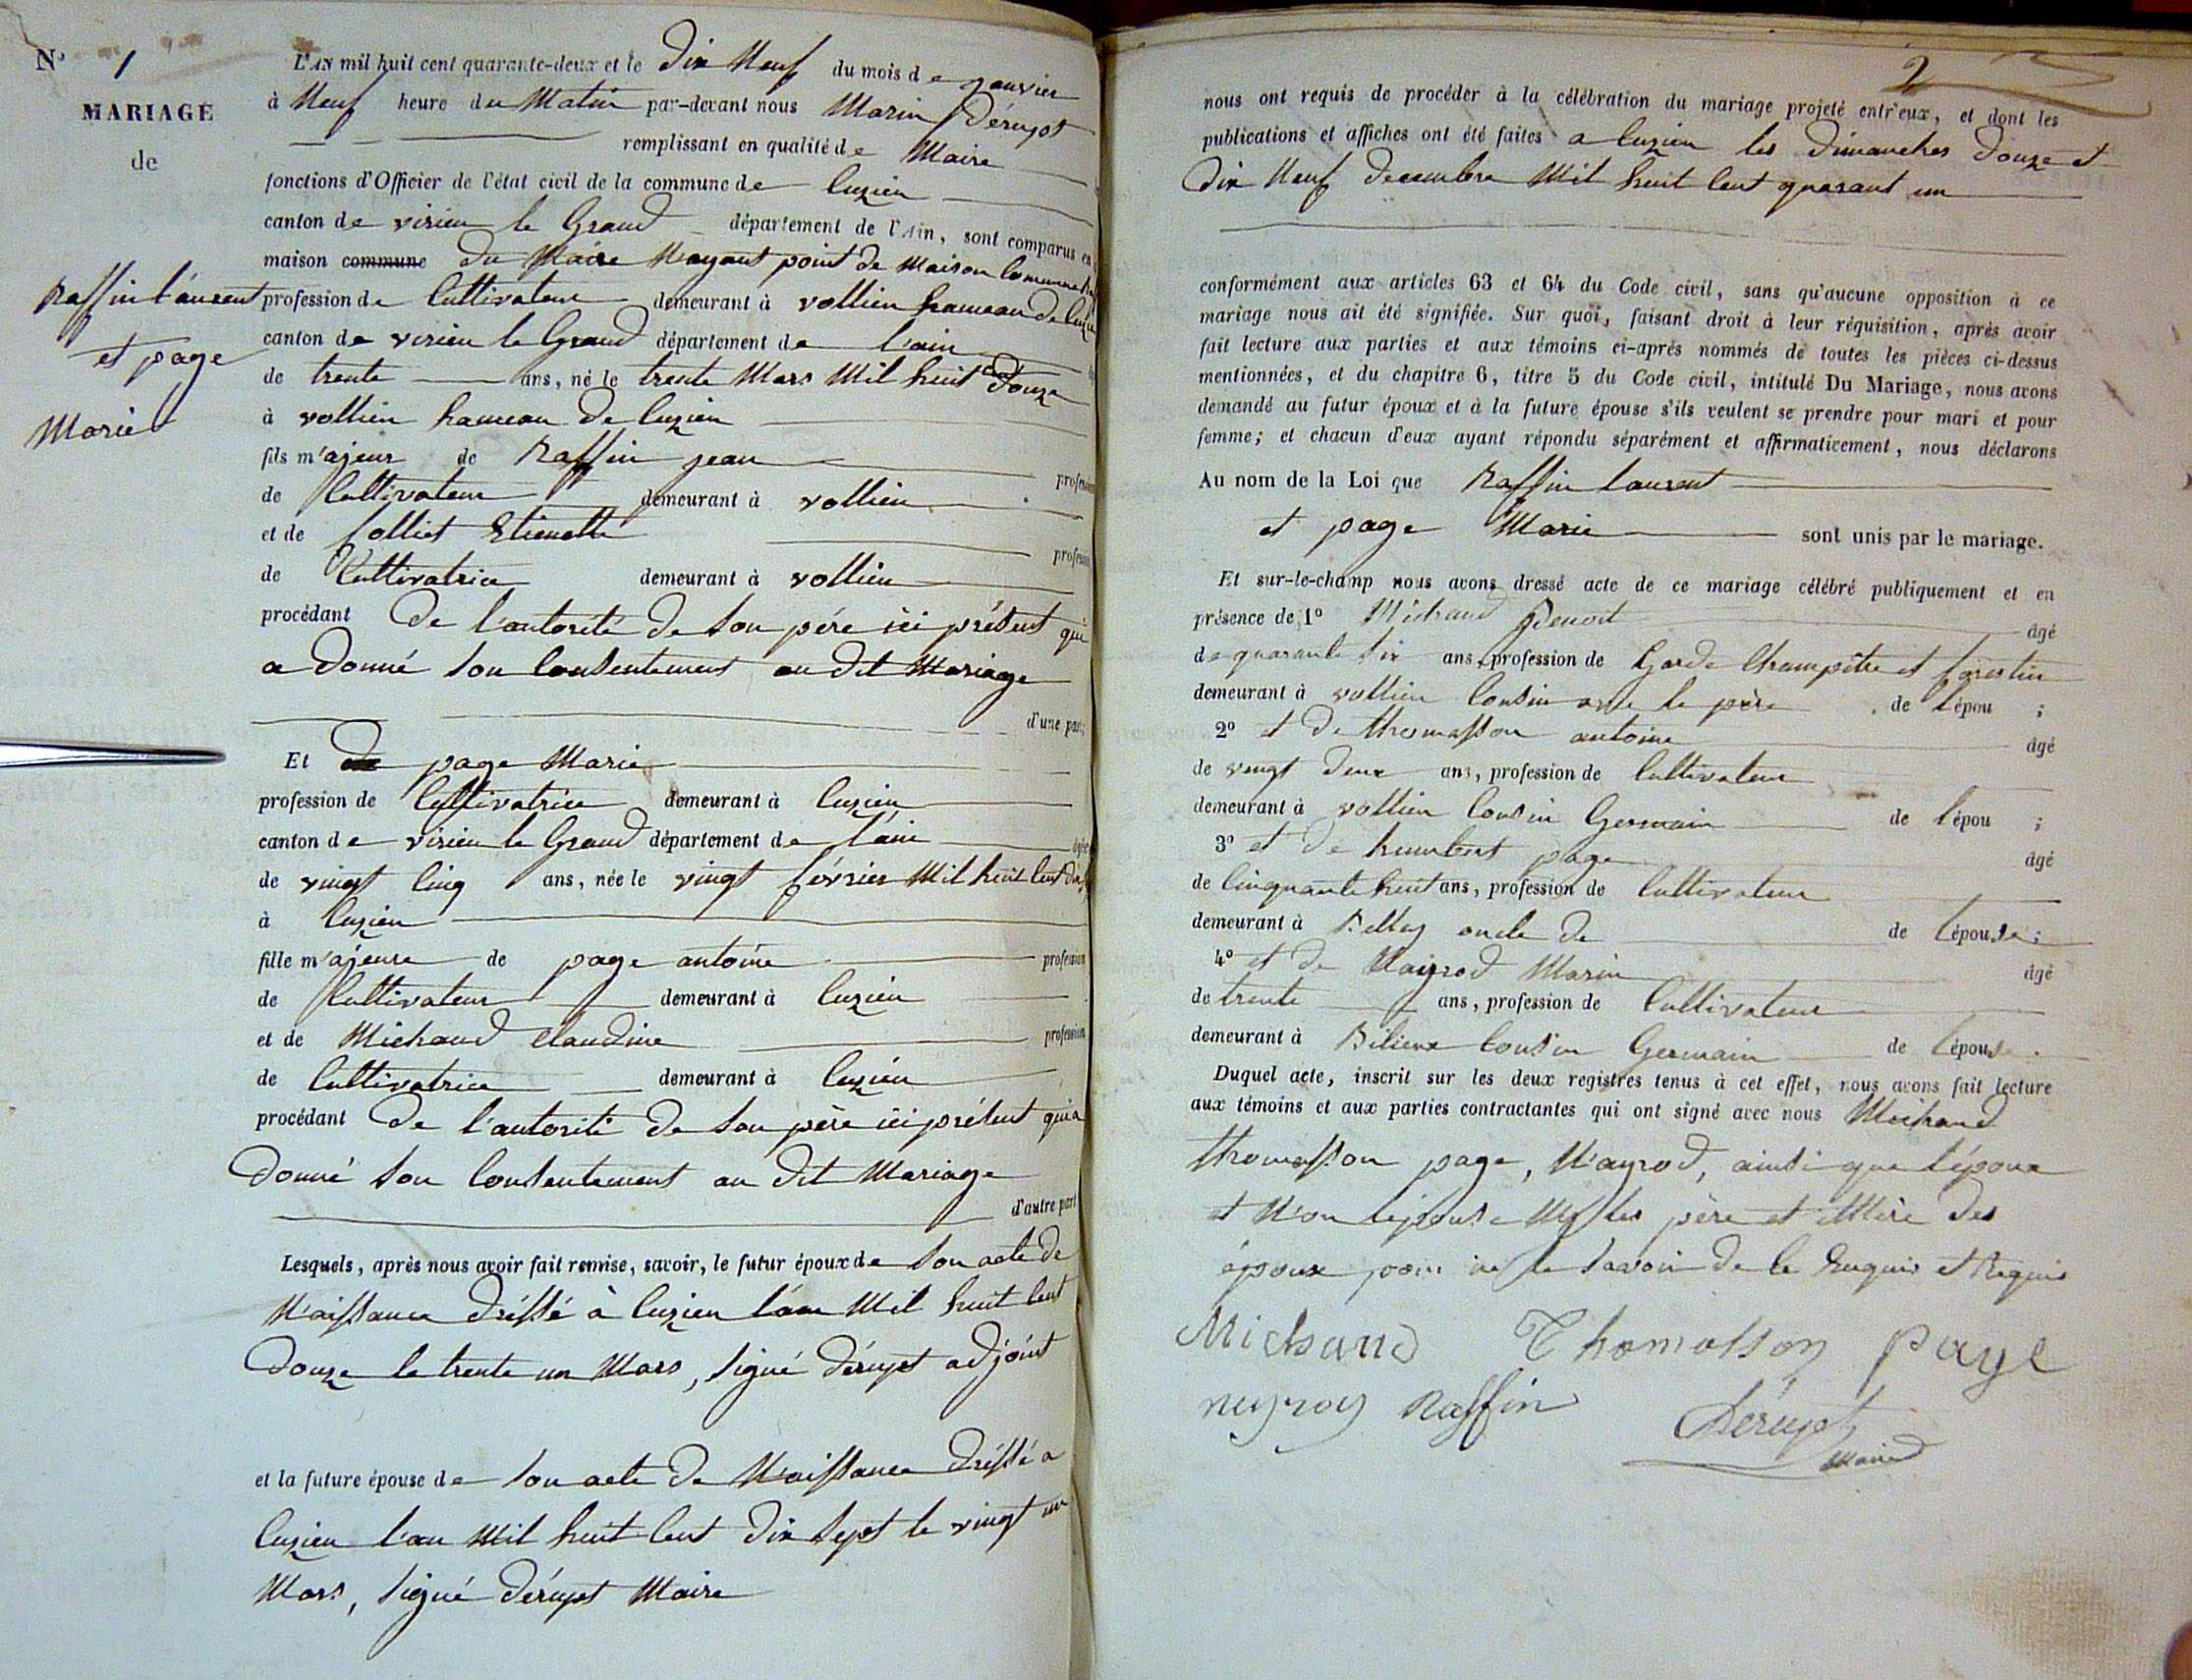 N° 1
MARIAGE
de
Raffin Laurent
et page
Marie
L'AN mil huit cent quarante-deux et le Dix Neuf du mois de janvier
à Neuf heure du Matin par-devant nous Marin Dérupt
remplissant en qualité de Maire
fonctions d'Officier de l'état civil de la commune de Cuzieu
canton de virieu le Grand département de l'Ain, sont comparus en
maison commune du Maire N'ayant point de Maison Commune
profession de Cultivateur demeurant à vollien hameau de Cuzieu
canton de virieu le Grand département de l'ain
de trente ans, né le trente Mars Mil huit Douze
à vollien hameau de Cuzieu
fils m'ajeur de Raffin jean profession
de Cultivateur demeurant à vollien
et de Colliet Etienette profession
de Cultivatrice demeurant à vollien
procédant De l'autorité de Son père ici présent qui
a Donné Son Consentement au dit Mariage
d'une part;
Et de page Marie
profession de Cultivatrice demeurant à Cuzieu
canton de virieu le Grand département de l'ain âgée
de vingt Cinq ans, née le vingt février Mil huit Cent Dix
à Cuzieu
fille m'ajeure de page antoine profession
de Cultivateur demeurant à Cuzieu
et de Michaud Claudine profession
de Cultivatrice demeurant à Cuzieu
procédant De l'autorité de Son père ici présent qui a
Donné Son Consentement au dit Mariage
d'autre part
Lesquels, après nous avoir fait remise, savoir, le futur époux de Son acte de
N'aissance Dréssé à Cuzieu l'an Mil huit Cent
Douze le trente un Mars, Signé Dérupt adjoint
et la future épouse de Son acte de N'aissance Dréssé a
Cuzieu l'an Mil huit Cent Dix Sept le vingt un
Mars, Signé Dérupt Maire
2
nous ont requis de procéder à la célébration du mariage projeté entr'eux, et dont les
publications et affiches ont été faites a Cuzieu les Dimanches Douze et
Dix Neuf Decembre Mil huit Cent quarant un
conformément aux articles 63 et 64 du Code civil, sans qu'aucune opposition à ce
mariage nous ait été signifiée. Sur quoi, faisant droit à leur réquisition, après avoir
fait lecture aux parties et aux témoins ci-après nommés de toutes les pièces ci-dessus
mentionnées, et du chapitre 6, titre 5 du Code civil, intitulé Du Mariage, nous avons
demandé au futur époux et à la future épouse s'ils veulent se prendre pour mari et pour
femme; et chacun d'eux ayant répondu séparément et affirmativement, nous déclarons
Au nom de la Loi que Raffin Laurent
et page Marie sont unis par le mariage.
Et sur-le-champ nous avons dressé acte de ce mariage célébré publiquement et en
présence de 1° Michaud Benoit âgé
de quarante Six ans, profession de Garde Champêtre et forestier
demeurant à vollien Cousin avec le père de l'épou ;
2° et De thomasson antoine âgé
de vingt deux ans, profession de Cultivateur
demeurant à vollien Cousin Germain de l'épou ;
3° et De humbert page âgé
de Cinquante huit ans, profession de Cultivateur
demeurant à Belley oncle de de l'épouse ;
4° et de Nayrod Marin âgé
de trente ans, profession de Cultivateur
demeurant à Bilieux Cousin Germain de l'épouse.
Duquel acte, inscrit sur les deux registres tenus à cet effet, nous avons fait lecture
aux témoins et aux parties contractantes qui ont signé avec nous Michaud
thomasson page, N'ayrod, ainsi que l'époux
et Non l'épouse Ny les père et Mère Des
époux pour ne le Savoir de le Enquis et Requis
Michaud Thomasson Page
neyroy Raffin Dérupt
Maire